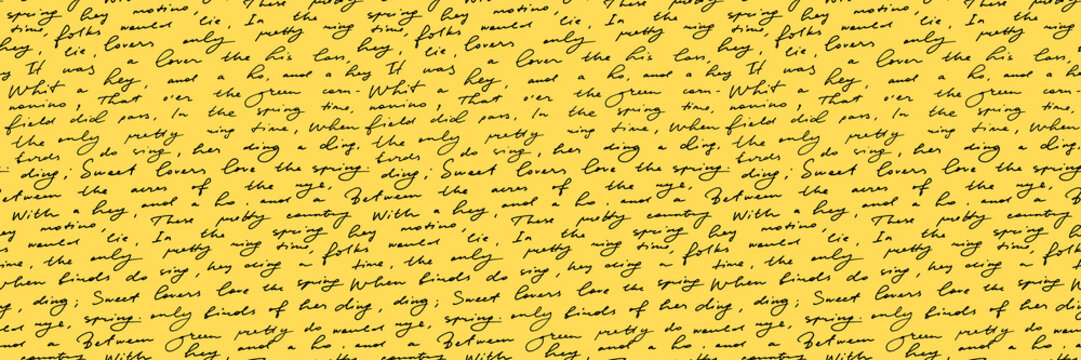 spring hey motino, lie, In the spring hey motino, lie, In the
time, folks would pretty ring time, folks would pretty ring
hey, lie, lovers only the his lass, hey, lie, lovers only the his lass,
It was a lover and a hey It was a lover and a hey
Whit a hey, and a ho, corn- Whit a hey, and a ho, corn-
nonino, That o'er the green time, nonino, That o'er the green time,
field did pass, In the spring When field did pass, In the spring When
the only pretty ring time, the only pretty ring time,
birds do sing, her ding a ding. birds do sing, her ding a ding.
ding; Sweet lovers love the spring. ding; Sweet lovers love the spring
Between the acres of the rye, Between the acres of the rye,
With a hey, and a ho, and a With a hey, and a ho, and a
These pretty country These pretty country
hey motino, In the spring hey motino, In the spring
would lie, pretty ring time, folks would lie, pretty ring time, folks
time, the only hey ding a time, the only hey ding a
when birds do sing, the spring When birds do sing, the spring
ding; Sweet lovers love ding ding; Sweet lovers love
would rye, spring. only birds of her ding would rye, spring. only birds of her ding
and a Between green pretty do and a Between green pretty do
country With hey country With hey